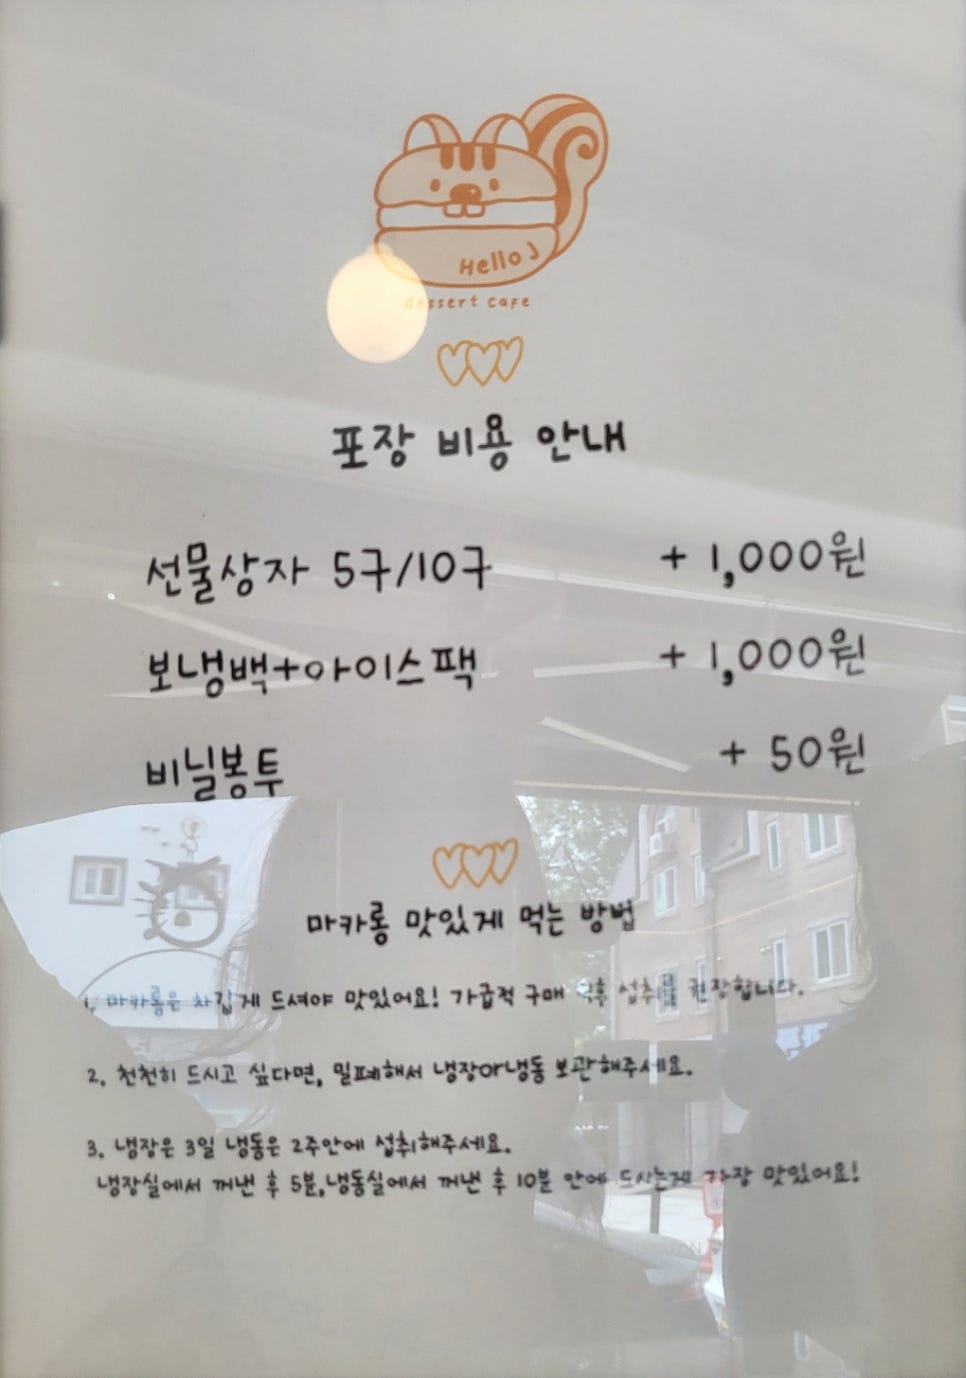 Hello J
dessert cafe
포장 비용 안내
선물상자 5구/10구 + 1,000원
보냉백+아이스팩 + 1,000원
비닐봉투 + 50원
마카롱 맛있게 먹는 방법
1. 마카롱은 차갑게 드셔야 맛있어요! 가급적 구매 직후 섭취를 권장합니다.
2. 천천히 드시고 싶다면, 밀폐해서 냉장or냉동 보관해주세요.
3. 냉장은 3일 냉동은 2주안에 섭취해주세요.
냉장실에서 꺼낸 후 5분,냉동실에서 꺼낸 후 10분 안에 드시는게 가장 맛있어요!